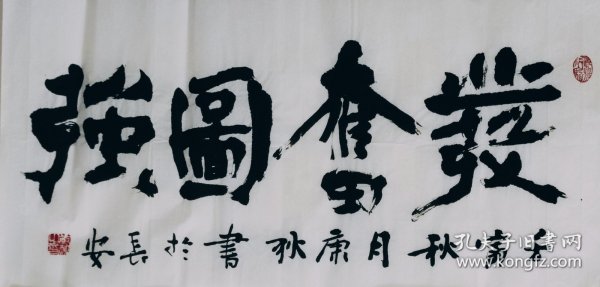 發奮圖強
秋月康狄書於長安
孔夫子旧书网
www.kongfz.com